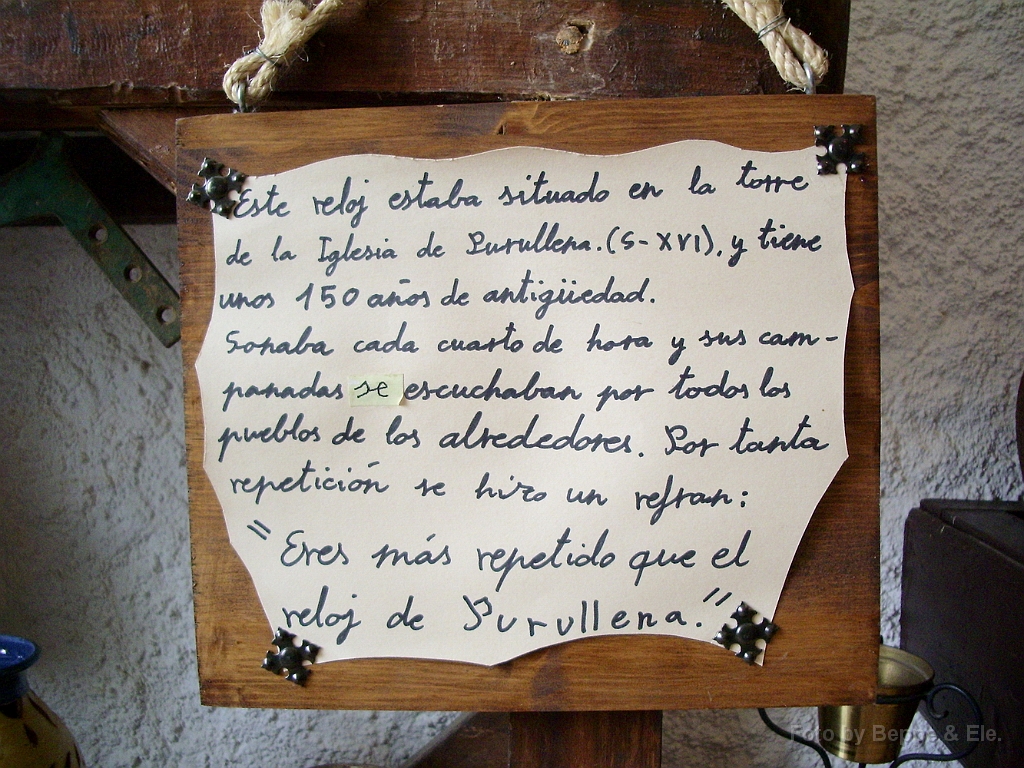 Este reloj estaba situado en la torre
de la Iglesia de Purullena. (S-XVI), y tiene
unos 150 años de antigüedad.
Sonaba cada cuarto de hora y sus cam-
panadas se escuchaban por todos los
pueblos de los alrededores. Por tanta
repetición se hizo un refran:
"Eres más repetido que el
reloj de Purullena."
Foto by Beppe & Ele.